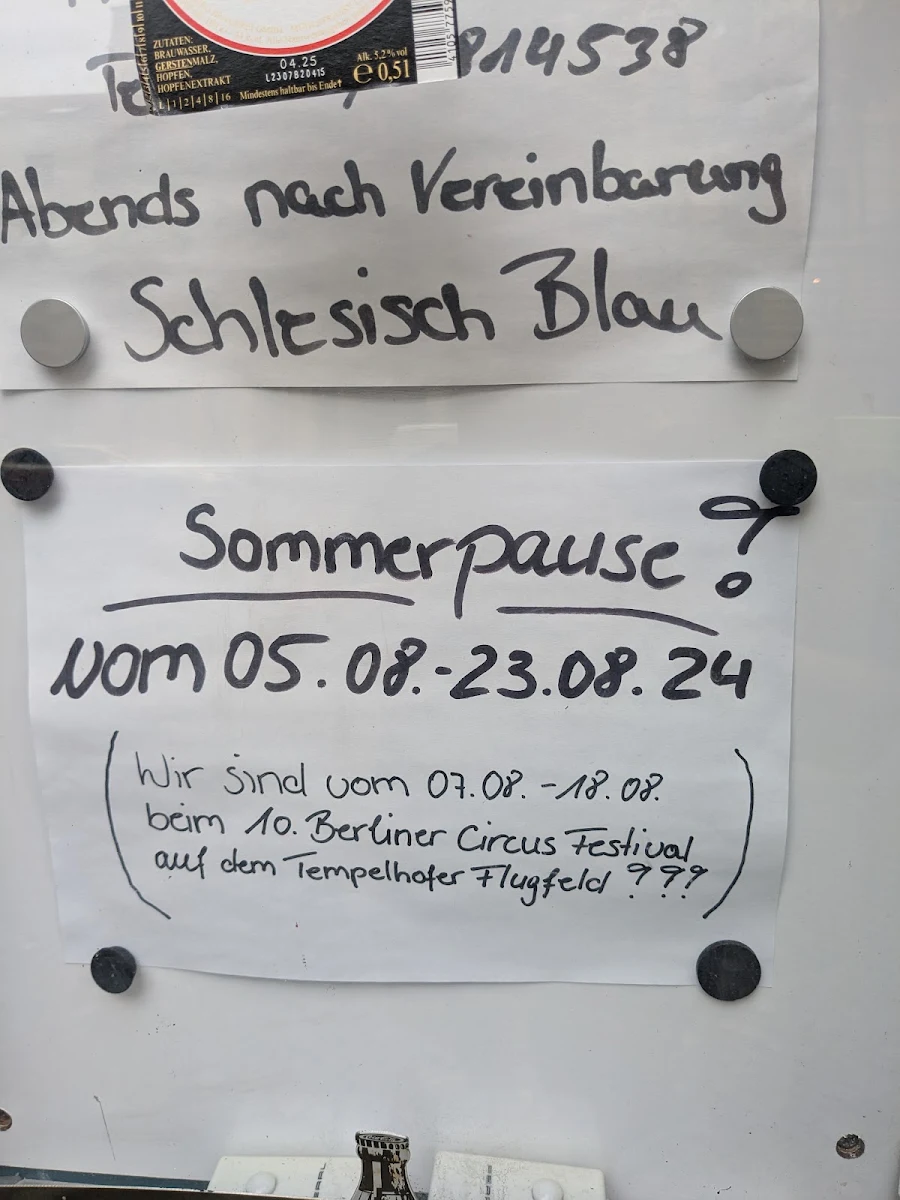 ZUTATEN:
BRAUWASSER,
GERSTENMALZ,
HOPFEN,
HOPFENEXTRAKT
04.25
L2307820415
Alk. 5,2% vol
e 0,5l
1|2|4|8|16 Mindestens haltbar bis Ende↑
814538
Abends nach Vereinbarung
Schlesisch Blau
Sommerpause?
vom 05.08.-23.08.24
(Wir sind vom 07.08.-18.08.
beim 10. Berliner Circus Festival
auf dem Tempelhofer Flugfeld ???)